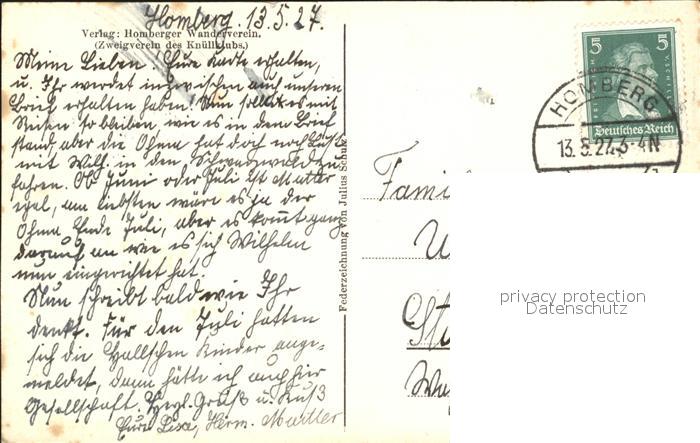 Homberg. 13.5.27.
Verlag: Homberger Wanderverein.
(Zweigverein des Knüllklubs.)
Meine Lieben! Eure Karte erhalten,
u. Ihr werdet inzwischen auch unseren
Brief erhalten haben. Nun sollte es mit
Reisen so bleiben, wie es in dem Brief
stand, aber die Ohma hat doch noch Lust
mit Willi in den Schwarzwald zu
fahren. Ob Juni oder Juli ist Mutter
egal, am liebsten wäre es ja der
Ohma Ende Juli, aber es kommt ganz
darauf an wie es sich Wilhelm
nun eingerichtet hat.
Nun schreibt bald wie Ihr
denkt. Für den Juli hatten
sich die Hallschen Kinder ange-
meldet, dann hätte ich auch hier
Gesellschaft. Herzl. Gruß u. Kuß
Eure Herm. Mutter
Federzeichnung von Julius Schunk
5 5
Deutsches Reich
HOMBERG
13.5.27.3-4N
Famil
privacy protection
Datenschutz